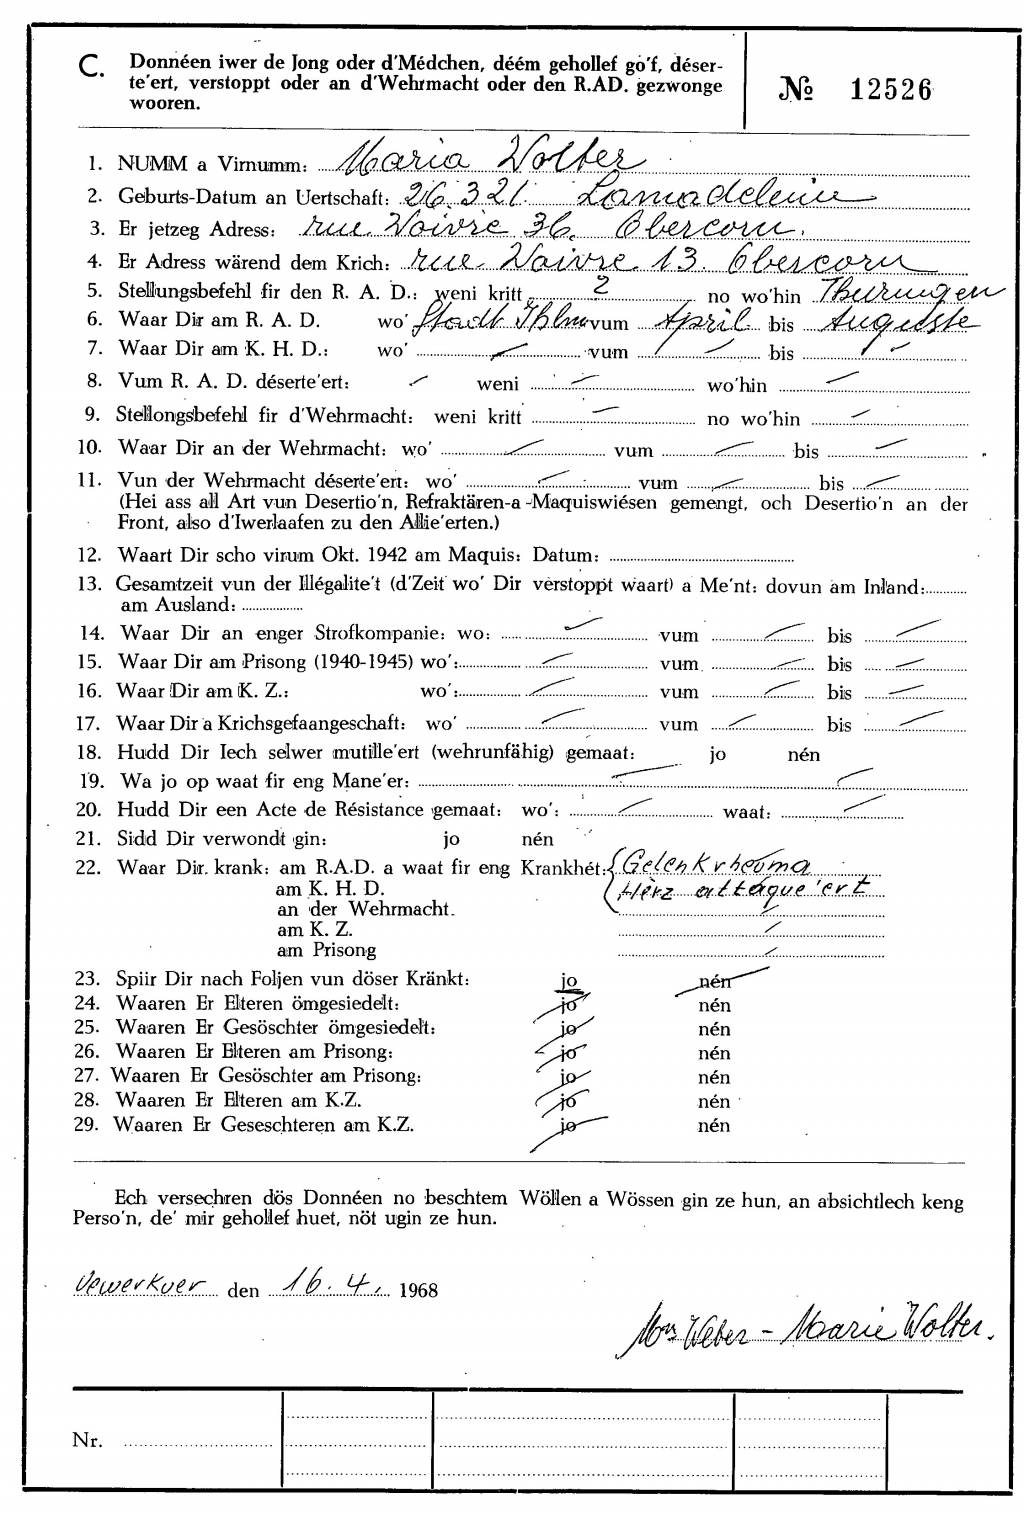 C. Donnéen iwer de Jong oder d'Médchen, déém gehollef go'f, déser-
te'ert, verstoppt oder an d'Wehrmacht oder den R.AD. gezwonge
wooren.
№ 12526
1. NUMM a Virnumm: Maria Wolter
2. Geburts-Datum an Uertschaft: 26.3 21. Lamadeleine
3. Er jetzeg Adress: rue Woivre 36. Obercorn.
4. Er Adress wärend dem Krich: rue Woivre 13. Obercorn
5. Stellungsbefehl fir den R. A. D.: weni kritt 2 no wo'hin Thuringen
6. Waar Dir am R. A. D. wo' Stadt Ihlm vum April bis Auguste
7. Waar Dir am K. H. D.: wo' vum bis
8. Vum R. A. D. déserte'ert: weni wo'hin
9. Stellongsbefehl fir d'Wehrmacht: weni kritt no wo'hin
10. Waar Dir an der Wehrmacht: wo' vum bis
11. Vun der Wehrmacht déserte'ert: wo' vum bis
(Hei ass all Art vun Desertio'n, Refraktären-a -Maquiswiésen gemengt, och Desertio'n an der
Front, also d'Iwerlaafen zu den Allie'erten.)
12. Waart Dir scho virum Okt. 1942 am Maquis: Datum:
13. Gesamtzeit vun der Illégalite't (d'Zeit wo' Dir verstoppt waart) a Me'nt: dovun am Inland:
am Ausland:
14. Waar Dir an enger Strofkompanie: wo: vum bis
15. Waar Dir am Prisong (1940-1945) wo': vum bis
16. Waar Dir am K. Z.: wo': vum bis
17. Waar Dir a Krichsgefaangeschaft: wo' vum bis
18. Hudd Dir Iech selwer mutille'ert (wehrunfähig) gemaat: jo nén
19. Wa jo op waat fir eng Mane'er:
20. Hudd Dir een Acte de Résistance gemaat: wo': waat:
21. Sidd Dir verwondt gin: jo nén
22. Waar Dir. krank: am R.A.D. a waat fir eng Krankhét: Gelenkrheuma
am K. H. D. Herz attaque'ert
an der Wehrmacht.
am K. Z.
am Prisong
23. Spiir Dir nach Foljen vun döser Kränkt: jo nén
24. Waaren Er Elteren ömgesiedelt: jo nén
25. Waaren Er Gesöschter ömgesiedelt: jo nén
26. Waaren Er Elteren am Prisong: jo nén
27. Waaren Er Gesöschter am Prisong: jo nén
28. Waaren Er Elteren am K.Z. jo nén
29. Waaren Er Geseschteren am K.Z. jo nén
Ech versechren dös Donnéen no beschtem Wöllen a Wössen gin ze hun, an absichtlech keng
Perso'n, de' mir gehollef huet, nöt ugin ze hun.
Uewerkuer den 16. 4. 1968
Weber - Marie Wolter.
Nr.